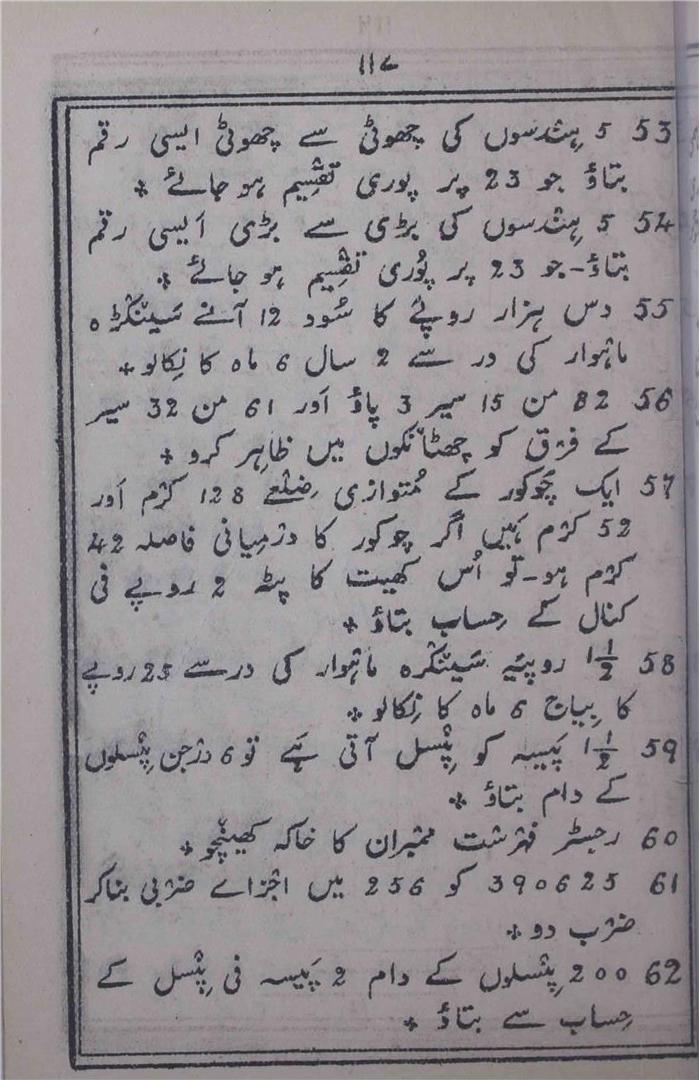 ۱۱۷
53 5 ہِنْدسوں کی چھوٹی سے چھوٹی ایسی رقم
بتاؤ جو 23 پر پوری تقْسِیم ہو جائے +
54 5 ہِنْدسوں کی بڑی سے بڑی اَیسی رقم
بتاؤ۔جو 23 پر پُوری تقْسِیم ہو جائے +
55 دس ہزار روپئے کا سُود 12 آنے سَینْکڑہ
ماہْوار کی در سے 2 سال 6 ماہ کا نِکالو +
56 82 من 15 سیر 3 پاؤ اَور 61 من 32 سیر
کے فرْق کو چھٹانْکوں میں ظاہِر کرو +
57 ایک چَوکور کے مُتوازی ضِلْعے 128 کرْم اَور
52 کرْم ہَیں اگر چوکور کا درْمِیانی فاصلہ 42
کرْم ہو۔تو اُس کھیت کا پٹہ 2 روپے فی
کنال کے حِساب بتاؤ +
58 1½ روپیَہ سَینْکڑہ ماہْوار کی در سے 25 روپے
کا بِیاج 6 ماہ کا نِکالو +
59 1½ پَیسہ کو پِنْسل آتی ہَے تو 6 درْجن پِنْسلوں
کے دام بتاؤ +
60 رجسٹر فہْرِسْت ممْبران کا خاکہ کھینْچو +
61 390625 کو 256 میں اجْزاے ضرْبی بناکر
ضرْب دو +
62 200 پِنْسلوں کے دام 2 پَیسہ فی پِنْسل کے
حِساب سے بتاؤ +